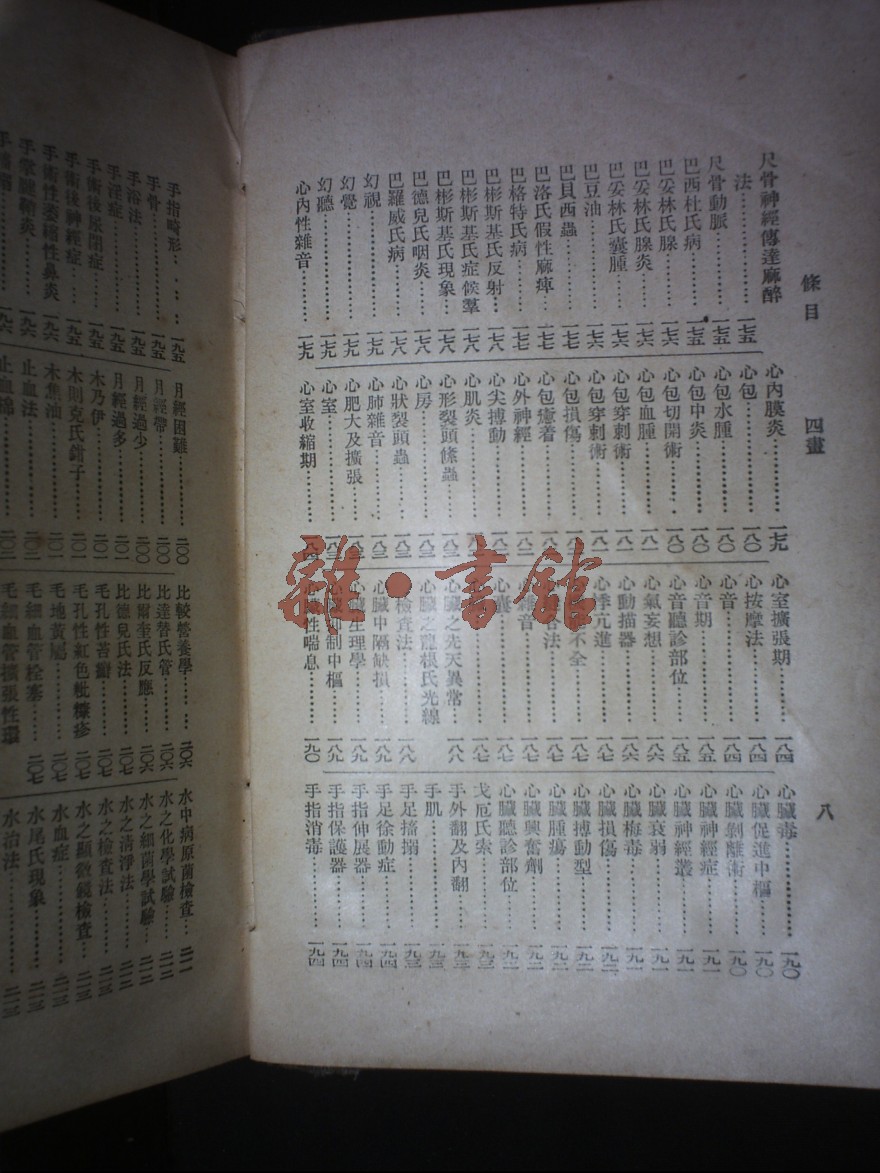 條目 四畫 八
尺骨神經傳達麻醉
法……一七五
尺骨動脈……一七五
巴西杜氏病……一七五
巴妥林氏腺……一七六
巴妥林氏腺炎……一七六
巴妥林氏囊腫……一七六
巴豆油……一七六
巴貝西蟲……一七七
巴洛氏假性麻痺……一七七
巴格特氏病……一七七
巴彬斯基氏反射……一七七
巴彬斯基氏症候羣……一七八
巴彬斯基氏現象……一七八
巴德兒氏咽炎……一七八
巴羅威氏病……一七八
幻視……一七九
幻覺……一七九
幻聽……一七九
心內性雜音……一七九
心內膜炎……一七九
心包……一八〇
心包水腫……一八〇
心包中炎……一八〇
心包切開術……一八〇
心包血腫……一八一
心包穿刺術……一八一
心包穿刺術……一八一
心包損傷
心包癒着
心外神經
心尖搏動
心肌炎
心形裂頭絛蟲
心房
心狀裂頭蟲
心肺雜音
心肥大及擴張
心室
心室收縮期……一八四
心室擴張期……一八四
心按摩法……一八四
心音……一八四
心音期……一八五
心音聽診部位……一八五
心氣妄想……一八六
心動描器……一八六
心悸亢進……一八七
不全……一八七
法……一八七
雜音……一八七
心臟之先天異常……一八八
心臟之龍根氏光線
檢查法……一八八
心臟中隔缺損……一八九
心臟生理學……一八九
心臟抑制中樞……一八九
心臟性喘息……一九〇
心臟毒……一九〇
心臟促進中樞……一九〇
心臟剝離術……一九〇
心臟神經症……一九一
心臟神經叢……一九一
心臟衰弱……一九一
心臟梅毒……一九一
心臟損傷……一九二
心臟搏動型……一九二
心臟腫瘍……一九二
心臟興奮劑……一九二
心臟聽診部位……一九二
戈厄氏索……一九三
手外翻及內翻……一九三
手肌……一九三
手足搐搦……一九三
手足徐動症……一九四
手指伸展器……一九四
手指保護器……一九四
手指消毒……一九四
手指畸形……一九五
手骨……一九五
手浴法……一九五
手淫症……一九五
手術後尿閉症……一九五
手術後神經症……一九五
手術性萎縮性鼻炎……一九六
手掌腱鞘炎……一九六
月經困難……二〇〇
月經帶……二〇〇
月經過少……二〇〇
月經過多……二〇一
木乃伊……二〇一
木則克氏鉗子……二〇一
木焦油……二〇一
止血法
止血綿
比較營養學……二〇六
比達替氏管……二〇六
比爾奎氏反應……二〇六
比德兒氏法……二〇七
毛孔性苔癬……二〇七
毛孔性紅色粃糠疹……二〇七
毛地黃屬……二〇七
毛細血管栓塞……二〇七
毛細血管擴張性環
水中病原菌檢查……二一一
水之化學試驗……二一二
水之細菌學試驗……二一二
水之清淨法……二一二
水之檢查法……二一二
水之顯微鏡檢查……二一三
水血症……二一三
水尾氏現象……二一三
水治法……二一三
雜·書館